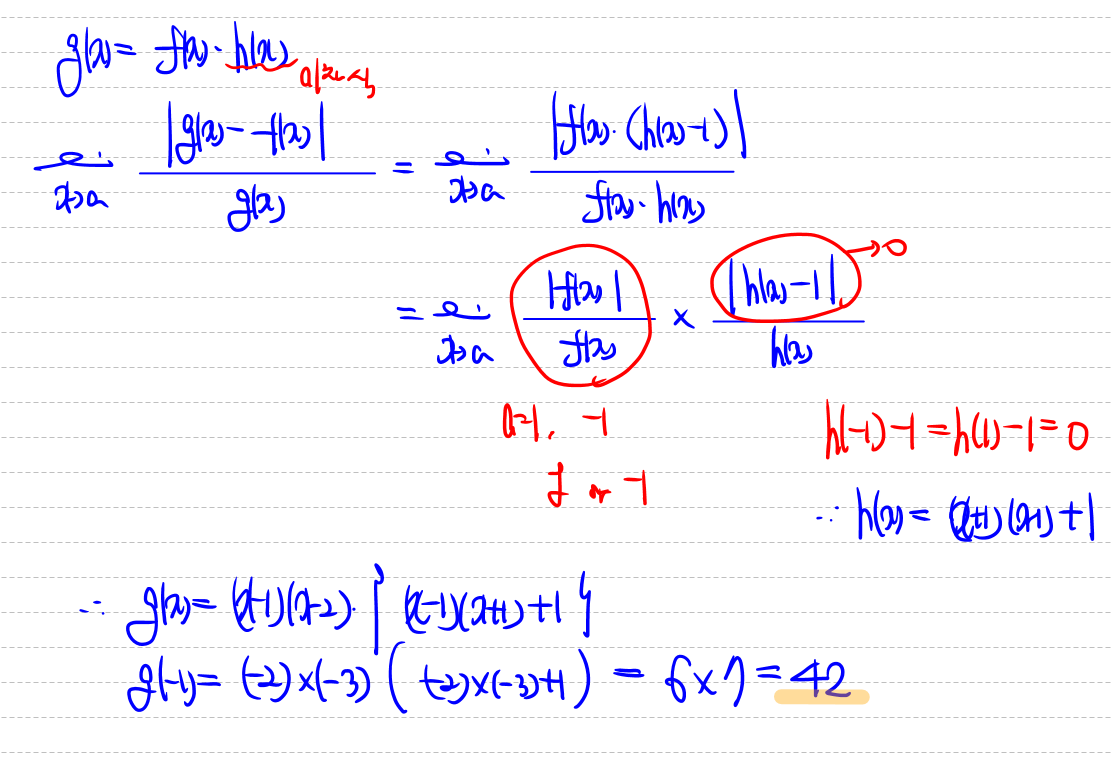 g(x) = f(x)·h(x)
lim x→a |g(x) - f(x)| / g(x) = lim x→a |f(x)·(h(x)-1)| / f(x)·h(x)
= lim x→a |f(x)| / f(x) × |h(x)-1| / h(x) → 0
a=1, -1
1 or -1
h(-1)-1 = h(1)-1 = 0
∴ h(x) = (x+1)(x-1)+1
∴ g(x) = (x-1)(x-2)·{(x-1)(x+1)+1}
g(-1) = (-2)×(-3)((-2)×(-3)+1) = 6×7 = 42